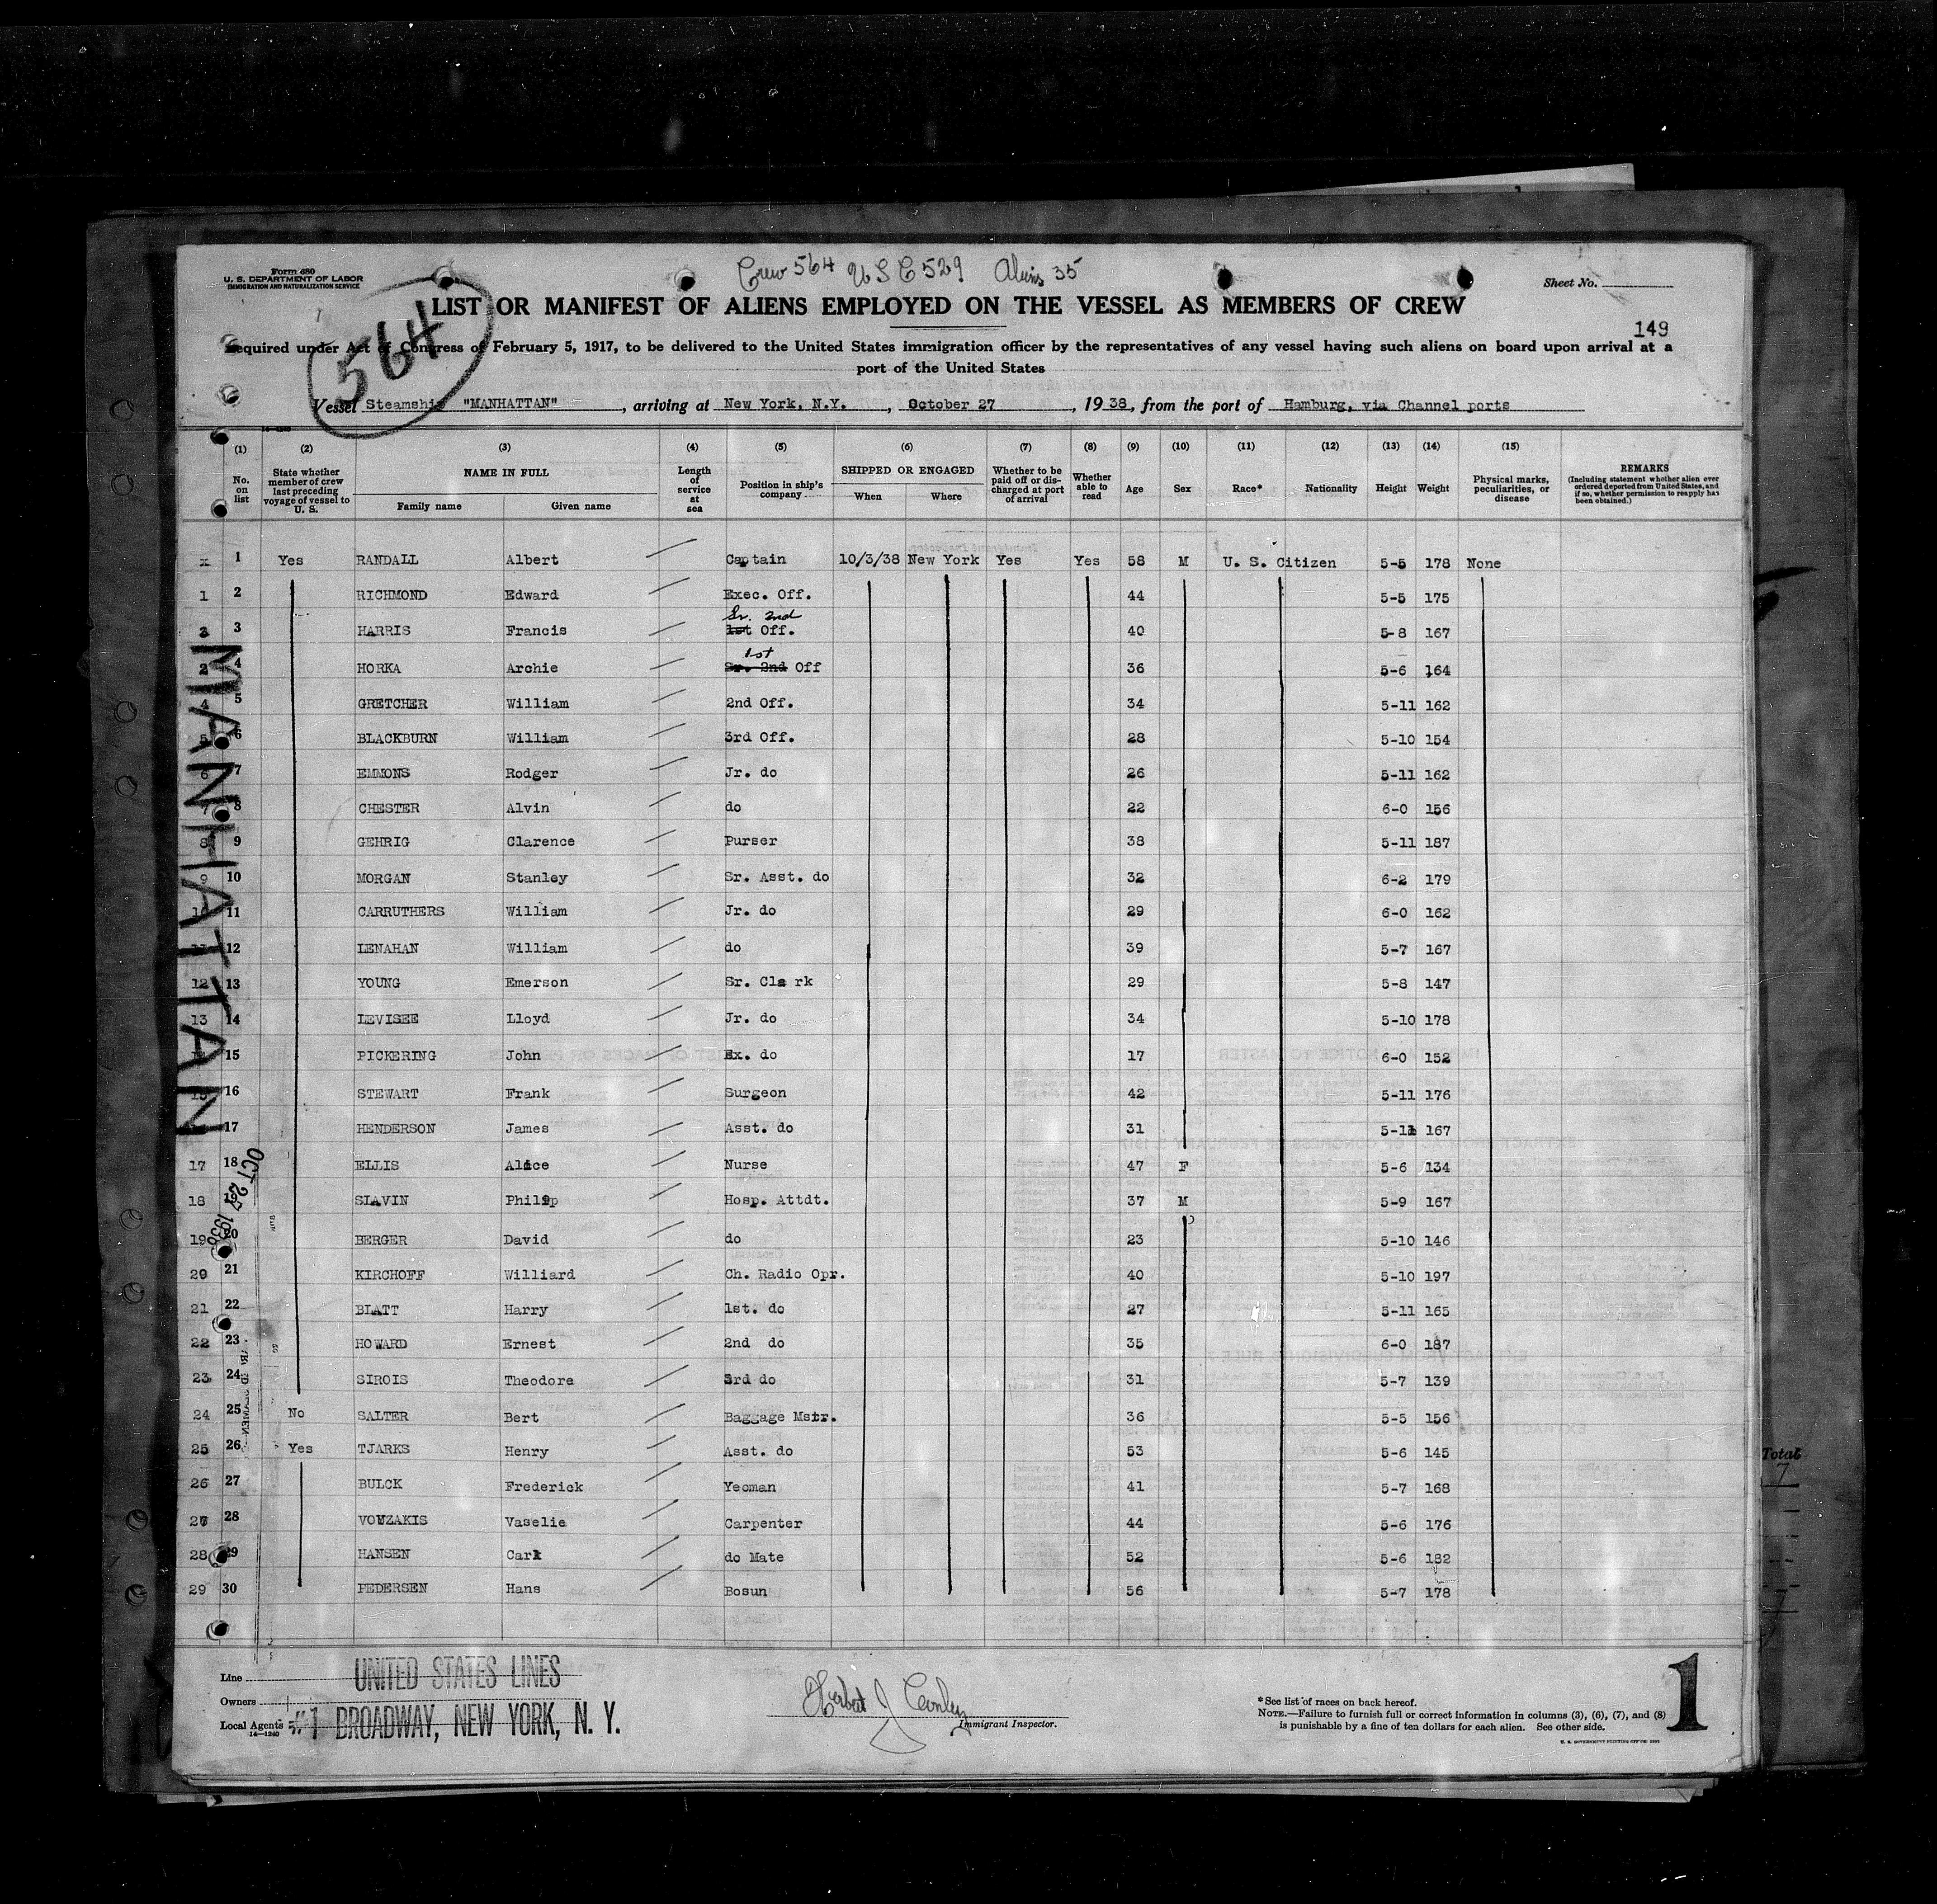 Crew 564 USC 529 Aliens 35
Form 680
U. S. DEPARTMENT OF LABOR
IMMIGRATION AND NATURALIZATION SERVICE
Sheet No.
564
LIST OR MANIFEST OF ALIENS EMPLOYED ON THE VESSEL AS MEMBERS OF CREW
149
Required under Act of Congress of February 5, 1917, to be delivered to the United States immigration officer by the representatives of any vessel having such aliens on board upon arrival at a
port of the United States
Vessel Steamship "MANHATTAN", arriving at New York, N.Y., October 27, 1938, from the port of Hamburg, via Channel ports
(1) (2) (3) (4) (5) (6) (7) (8) (9) (10) (11) (12) (13) (14) (15)
No. on list
State whether member of crew last preceding voyage of vessel to U. S.
NAME IN FULL
Family name Given name
Length of service at sea
Position in ship's company
SHIPPED OR ENGAGED
When Where
Whether to be paid off or discharged at port of arrival
Whether able to read
Age
Sex
Race*
Nationality
Height
Weight
Physical marks, peculiarities, or disease
REMARKS
(Including statement whether alien ever ordered deported from United States, and if so, whether permission to reapply has been obtained.)
x 1 Yes RANDALL Albert Captain 10/3/38 New York Yes Yes 58 M U. S. Citizen 5-5 178 None
1 2 RICHMOND Edward Exec. Off. 44 5-5 175
Sr. 2nd
3 3 HARRIS Francis 1st Off. 40 5-8 167
1st
2 4 HORKA Archie Sr. 2nd Off 36 5-6 164
4 5 GRETCHER William 2nd Off. 34 5-11 162
5 6 BLACKBURN William 3rd Off. 28 5-10 154
6 7 EMMONS Rodger Jr. do 26 5-11 162
7 8 CHESTER Alvin do 22 6-0 156
8 9 GEHRIG Clarence Purser 38 5-11 187
9 10 MORGAN Stanley Sr. Asst. do 32 6-2 179
10 11 CARRUTHERS William Jr. do 29 6-0 162
11 12 LENAHAN William do 39 5-7 167
12 13 YOUNG Emerson Sr. Clerk 29 5-8 147
13 14 LEVISEE Lloyd Jr. do 34 5-10 178
15 PICKERING John Ex. do 17 6-0 152
15 16 STEWART Frank Surgeon 42 5-11 176
17 HENDERSON James Asst. do 31 5-11 167
17 18 ELLIS Alice Nurse 47 F 5-6 134
18 19 SLAVIN Philip Hosp. Attdt. 37 M 5-9 167
19 20 BERGER David do 23 5-10 146
20 21 KIRCHOFF Williard Ch. Radio Opr. 40 5-10 197
21 22 BLATT Harry 1st. do 27 5-11 165
22 23 HOWARD Ernest 2nd do 35 6-0 187
23 24 SIROIS Theodore 3rd do 31 5-7 139
24 25 No SALTER Bert Baggage Mstr. 36 5-5 156
25 26 Yes TJARKS Henry Asst. do 53 5-6 145
26 27 BULCK Frederick Yeoman 41 5-7 168
27 28 VOUZAKIS Vaselie Carpenter 44 5-6 176
28 29 HANSEN Carl do Mate 52 5-6 182
29 30 PEDERSEN Hans Bosun 56 5-7 178
MANHATTAN
OCT 27 1938
Total
7
Line UNITED STATES LINES
Owners
Local Agents #1 BROADWAY, NEW YORK, N. Y.
14-1240
Immigrant Inspector.
*See list of races on back hereof.
NOTE.—Failure to furnish full or correct information in columns (3), (6), (7), and (8)
is punishable by a fine of ten dollars for each alien. See other side.
1